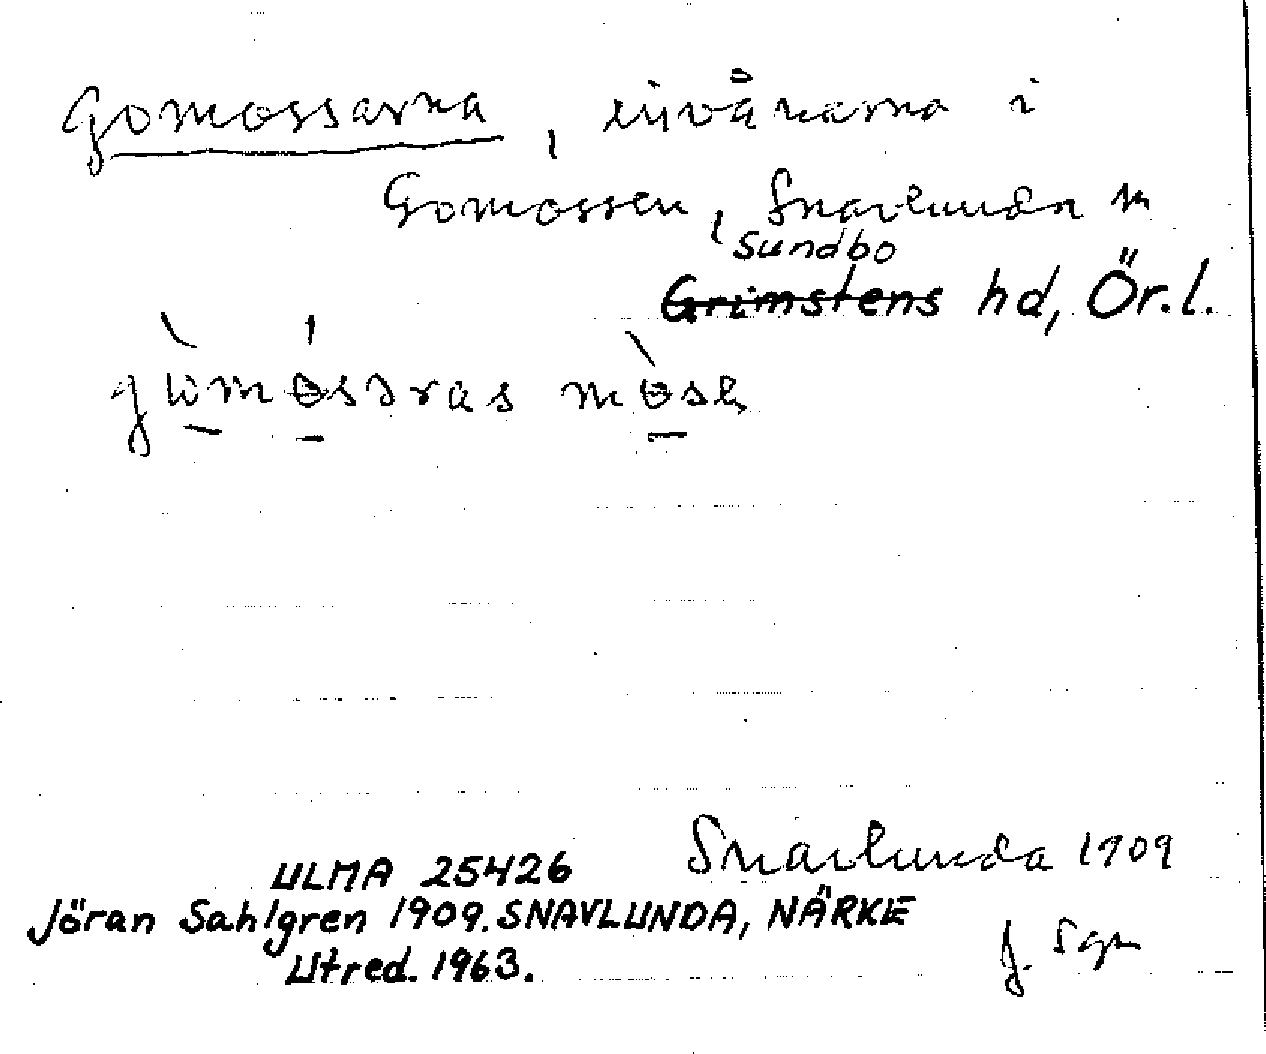 Gomossarna, invånarna i
Gomossen, Snavlunda sn
Sundbo
Grimstens hd, Ör.l.
gòmósəras mòsɐ
Snavlunda 1909
ULMA 25426
Jöran Sahlgren 1909. SNAVLUNDA, NÄRKE
J. Sgn
Utred. 1963.